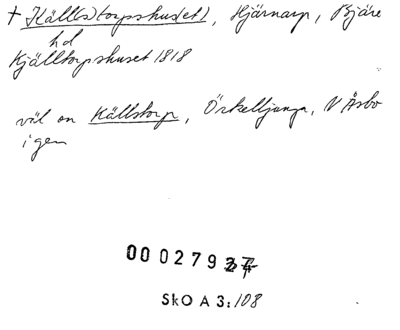 † Käll(s)torpshuset), Hjärnarp, Bjäre
hd
Kjälltorpshuset 1818
väl en Källstorp, Örkelljunga, N Åsbo
igen
00 02793
SkO A 3:108